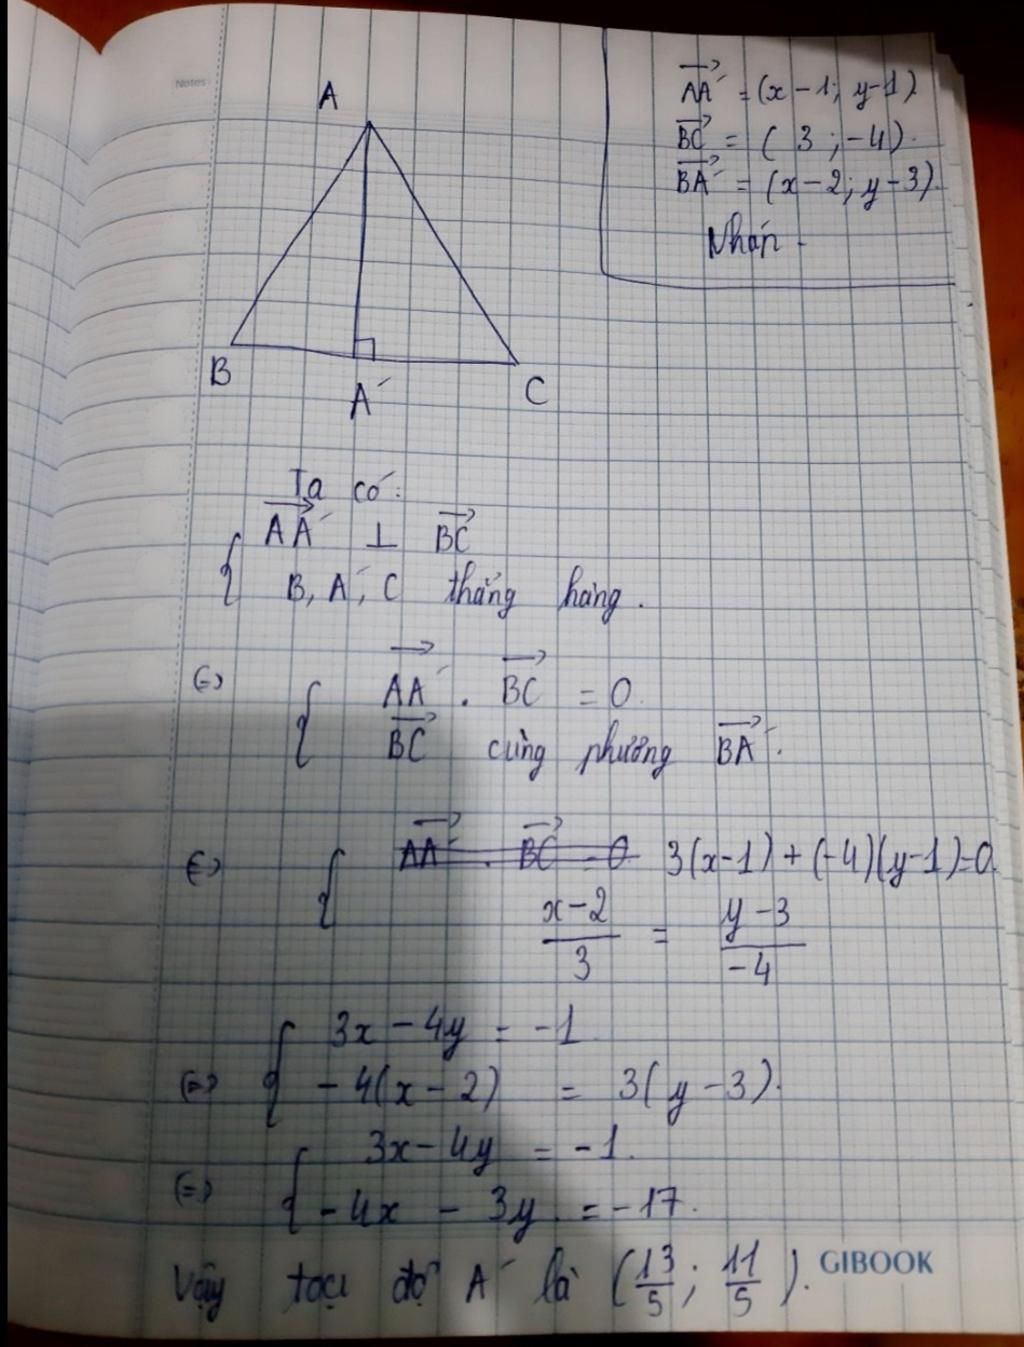 Notes
A
B
A'
C
AA'→ = (x - 1; y - 1)
BC→ = (3; -4).
BA'→ = (x - 2; y - 3).
Nháp -
Ta có:
{ AA'→ ⊥ BC→
B, A', C thẳng hàng.
(=) { AA'→ . BC→ = 0.
BC→ cùng phương BA'→.
(=) { AA'→ . BC→ = 0 3(x-1) + (-4)(y-1) = 0.
(x-2)/3 = (y-3)/-4
(=) { 3x - 4y = -1.
-4(x - 2) = 3(y - 3).
(=) { 3x - 4y = -1.
-4x - 3y = -17.
Vậy tọa độ A' là (13/5; 11/5).
GIBOOK